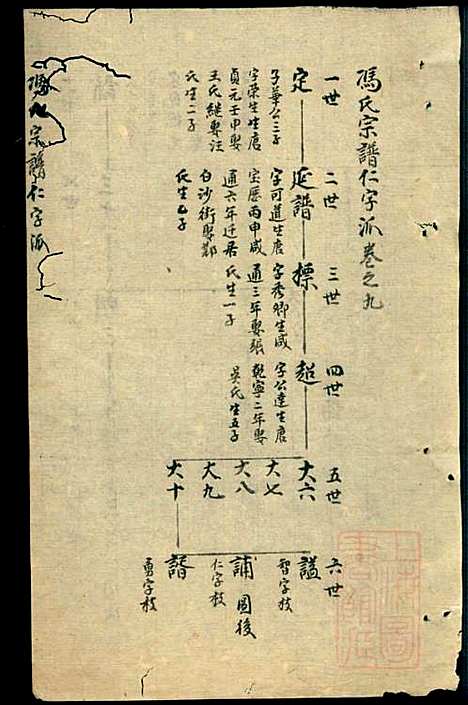 馮氏宗譜仁字派卷之九
一世
二世
三世
四世
五世
六世
定
子華公三子
字榮生生唐
貞元壬申娶
王氏継娶汪
氏生二子
延譜
字可道生唐
宝歷丙申咸
通六年迁居
白沙街娶鄭
氏生乙子
標
字秀卿生咸
通三年娶張
氏生一子
超
字公達生唐
乾寧二年娶
吳氏生五子
大六
大七
大八
大九
大十
謚
智字枝
誧
圖後
仁字枝
勇字枝
宗譜仁字派